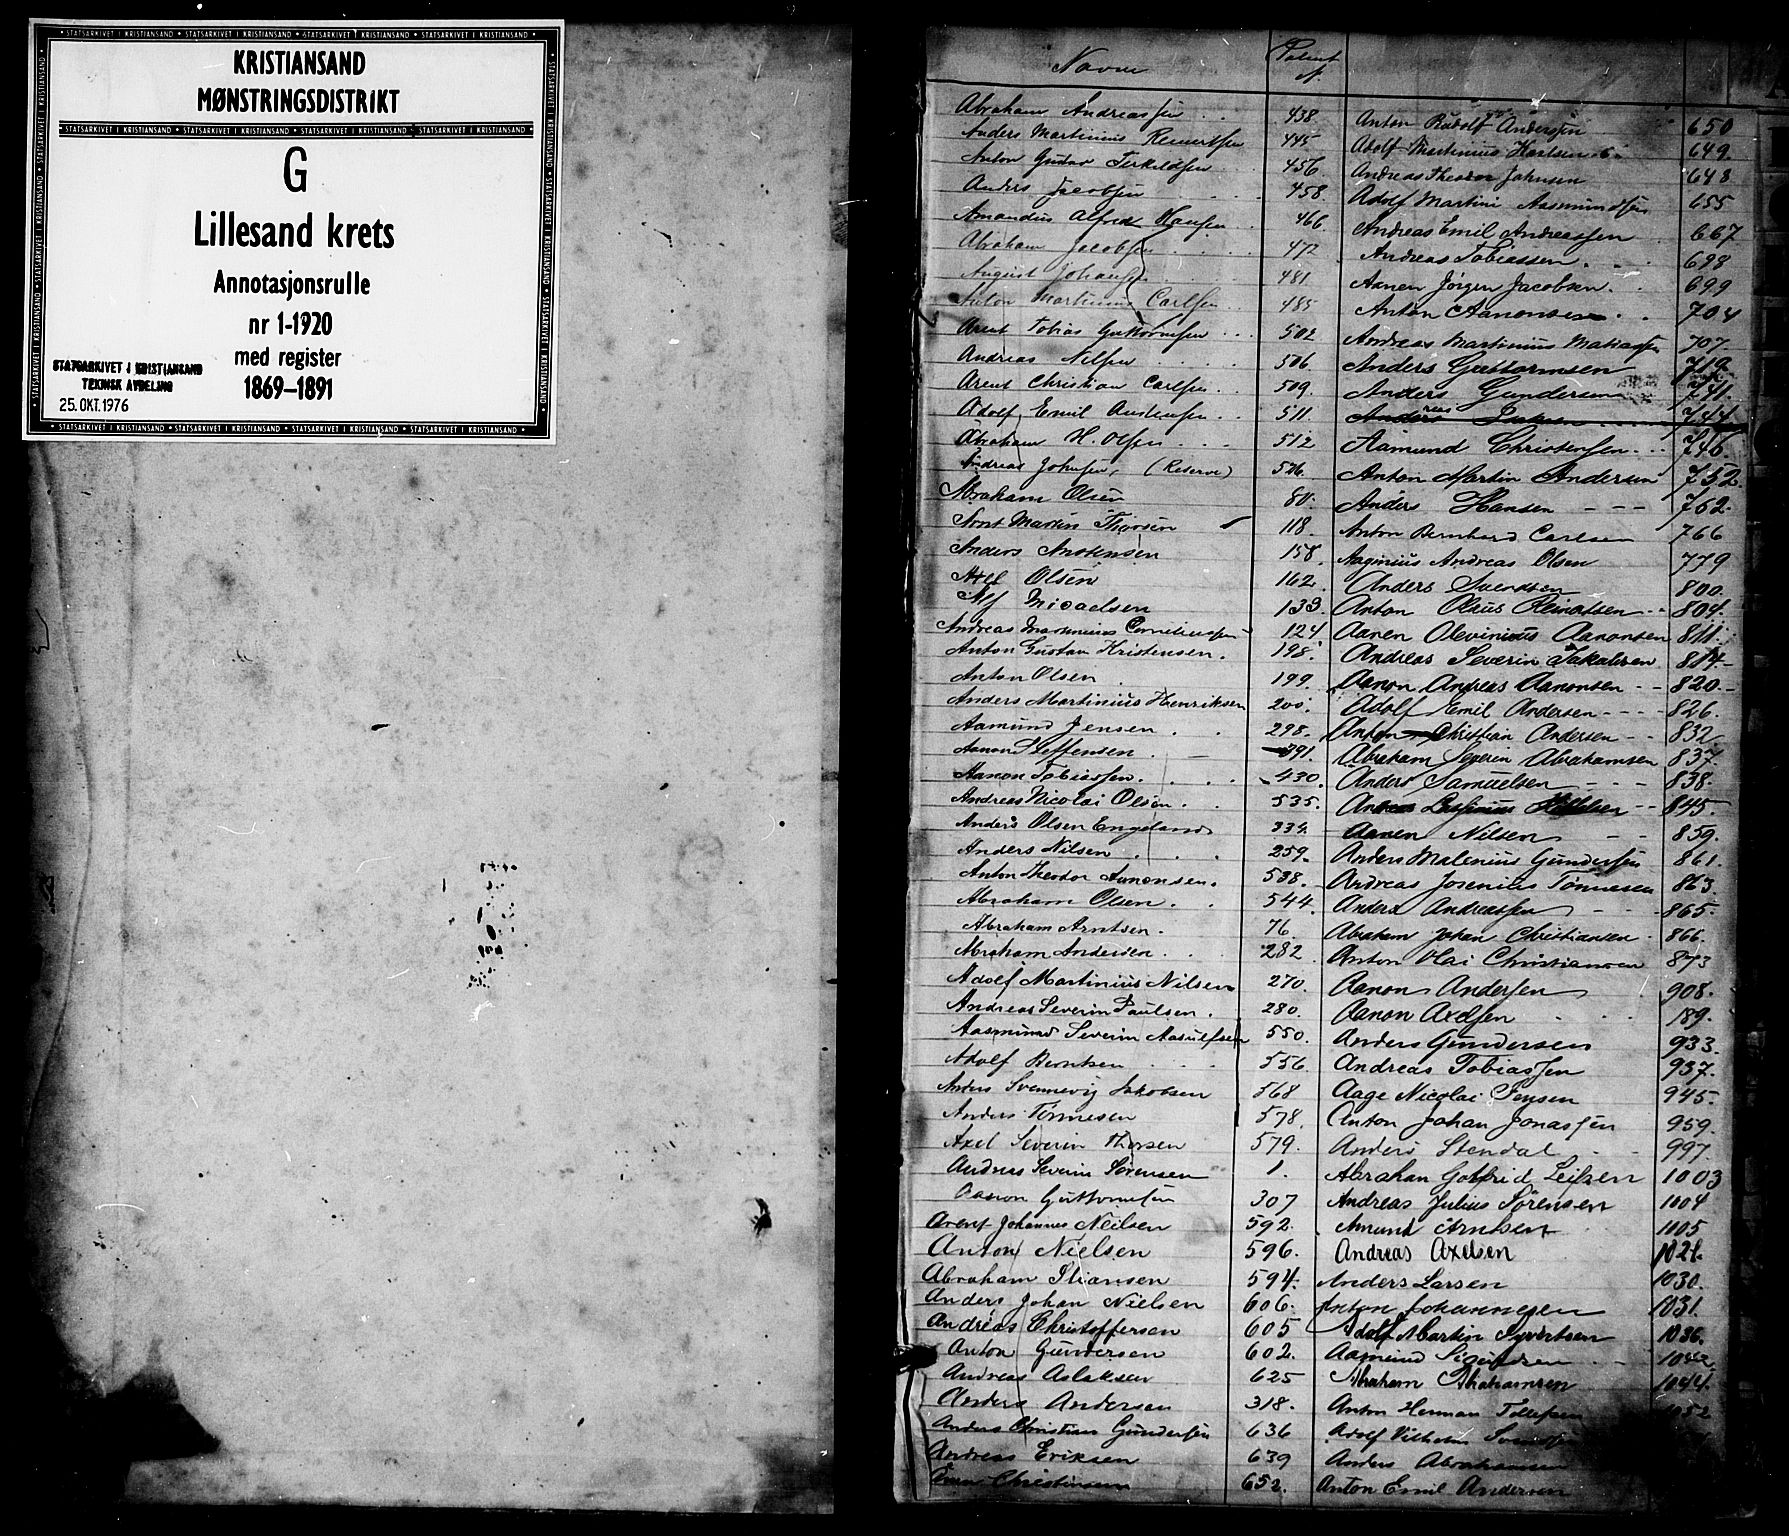 KRISTIANSAND
MØNSTRINGSDISTRIKT
G
Lillesand krets
Annotasjonsrulle
nr 1-1920
med register
1869-1891
STATSARKIVET I KRISTIANSAND
TEKNISK AVDELING
25. OKT. 1976
Navn
Abraham Andreassen 438
Anders Martinius Reinertsen 445
Anton Gustav Terkildsen 456
Anders Jacobsen 458
Amandus Alfred Hansen 466
Abraham Jacobsen 472
August Johansen 481
Anton Martinius Carlsen 485
Arent Tobias Guttormsen 502
Andreas Nilsen 506
Arent Christian Carlsen 509
Adolf Emil Austensen 511
Abraham H. Olsen 512
Andreas Johnsen, (Reserve) 526
Abraham Olsen 80.
Arnt Martin Thorsen 118
Anders Anstensen 158
Axel Olsen 162
Alf Micaelsen 133
Andreas Martinius Corneliussen 124
Anton Gustav Kristensen. 198
Anton Olsen 199
Anders Martinius Henriksen 200
Aamund Jensen 298
Aanon Steffensen 391
Aanon Tobiassen 430
Andreas Nicolai Olsen 535
Anders Olsen Engeland 334
Anders Nilsen 259
Anton Theodor Aanonsen. 538
Abraham Olsen. 544
Abraham Arntsen. 76
Abraham Andersen 282
Adolf Martinius Nilsen 270
Andreas Severin Paulsen. 280.
Aasmund Severin Aasulfsen 550
Adolf Berntsen 556
Anders Svennevig Jakobsen 568
Anders Tønnesen 578
Axel Severin Thorsen 579
Andreas Severin Sørensen 1
Aanon Guttormsen 307
Arent Johannes Neilsen 592
Anton Nielsen 596.
Abraham Stiansen 594
Anders Johan Nielsen 606.
Andreas Christoffersen 605
Anton Gundersen 602.
Andreas Aslaksen 625
Anders Andersen 318.
Anders Christian Gundersen 636
Andreas Eriksen 639
Christensen 652.
Anton Rudolf Andersen 650
Adolf Martinius 649.
Andreas Theodor Johnsen 648
Adolf Martini Aasmundsen 655
Andreas Emil Andreassen 667
Andreas Tobiassen 698
Aanen Jørgen Jacobsen. 699
Anton Aanonsen 704
Andreas Martinius Mathiassen 707.
Anders Guttormsen 719.
Anders Gundersen 741.
744
Aamund Christensen 746.
Anton Martin Andersen 752.
Anders Hansen 762.
Anton Bernhard Carlsen 766
Andreas Olsen 779
Anders Svendsen 800.
Anton Olaus Reinertsen 804.
Aanen Olevinius Aanonsen 811
Andreas Severin Jakobsen 814
Aanon Andreas Aanonsen 820.
Adolf Emil Andersen 826.
Anton Christian Andersen 832
Abraham Severin Abrahamsen 837.
Anders Samuelsen 838.
845
Aanen Nilsen 859.
Anders Malenius Gundersen 861.
Andreas Josenius Tønnesen 863
Anders Andreassen 865.
Abraham Johan Christiansen 866
Anton Olai Christiansen 873
Aanon Andersen 908.
Aanon Axelsen 189.
Anders Gundersen 933.
Andreas Tobiassen 937.
Aage Nicolai Jensen 945
Anton Johan Jonassen 959.
Anders Stendal 997
Abraham Gotfrid Leifsen 1003
Andreas Julius Sørensen 1004
Amund Arntsen 1005
Andreas Axelsen 1021.
Anders Larsen 1030
Anton Johannesen 1031
Adolf Martin Syvertsen 1036.
Aamund Sigurdsen 1042
Abraham Abrahamsen 1044.
Anton Herman Tellefsen 1052
Adolf Vilhelm
Anders Abrahamsen
Anton Emil Andersen